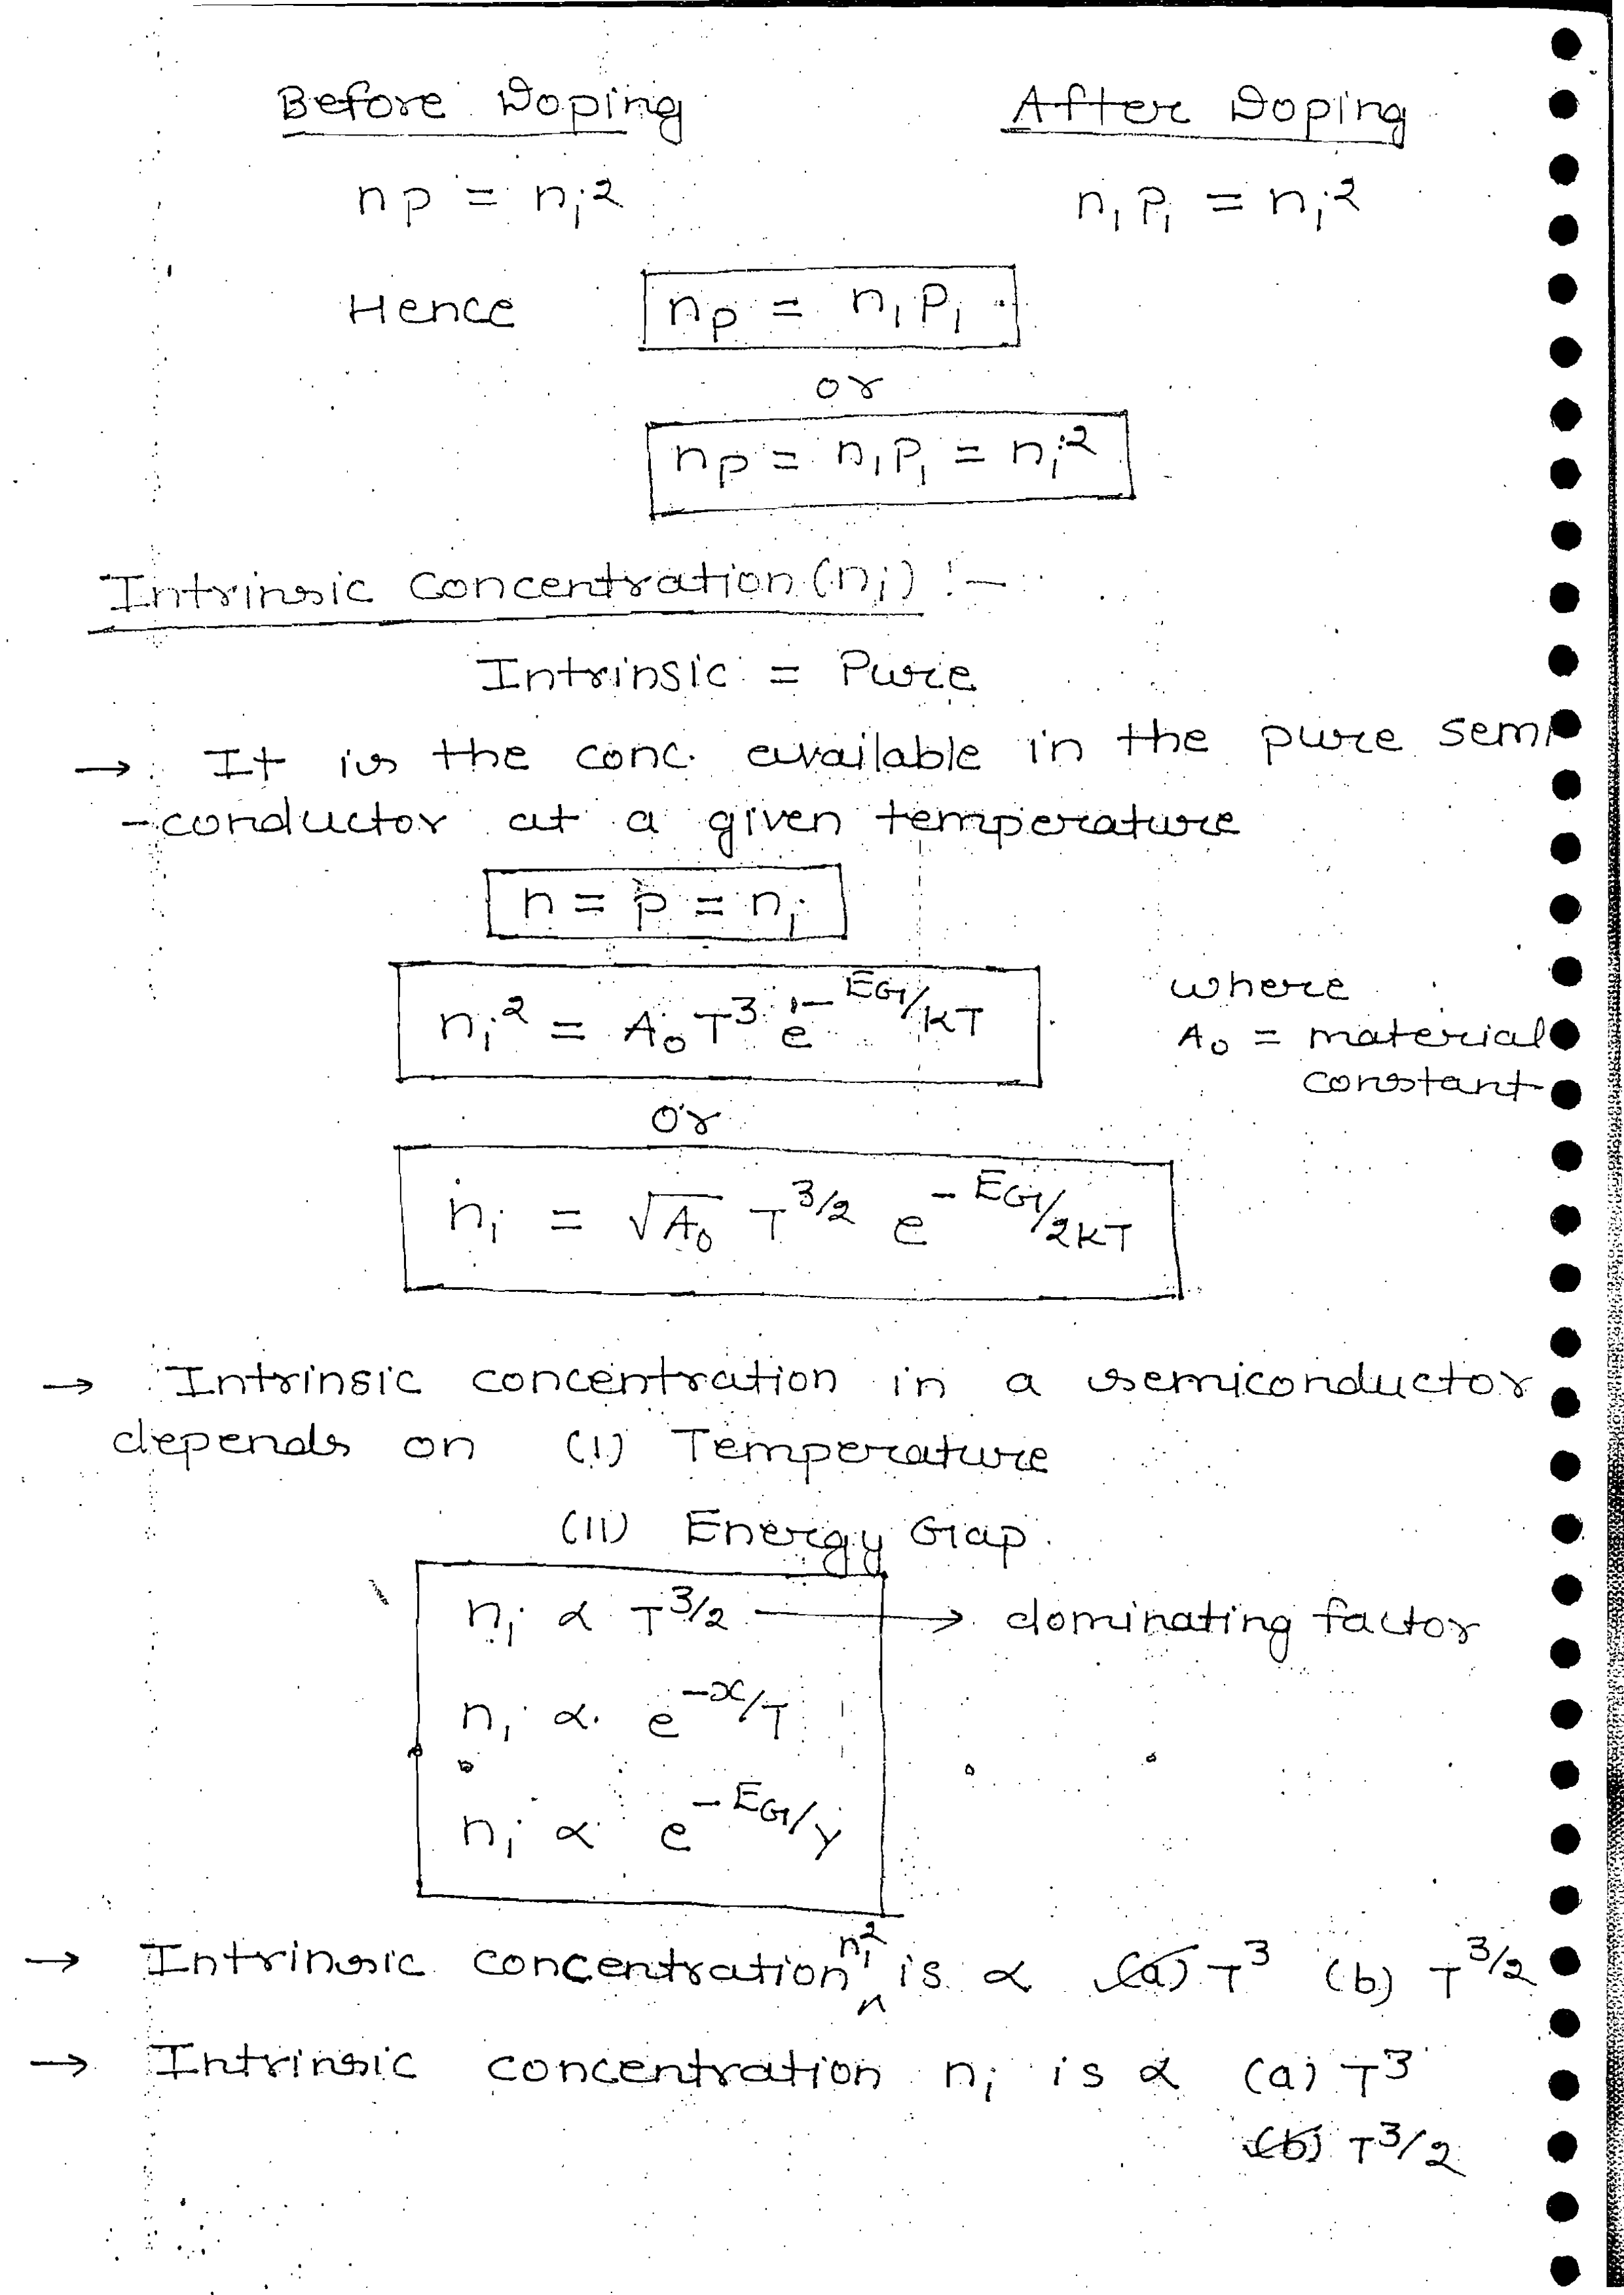 Before Doping After Doping
np = ni² n₁P₁ = ni²
Hence np = n₁P₁
or
np = n₁P₁ = ni²
Intrinsic Concentration (ni) :-
Intrinsic = Pure
→ It is the conc. available in the pure semi
-conductor at a given temperature
n = p = ni
ni² = A₀T³ e^-EG/KT where
A₀ = material
constant
or
ni = √A₀ T^3/2 e^-EG/2KT
→ Intrinsic concentration in a semiconductor
depends on (I) Temperature
(II) Energy Gap.
ni ∝ T^3/2 → dominating factor
ni ∝ e^-x/T
ni ∝ e^-EG/y
→ Intrinsic concentration ni² is ∝ (a) T³ (b) T^3/2
→ Intrinsic concentration ni is ∝ (a) T³
(b) T^3/2